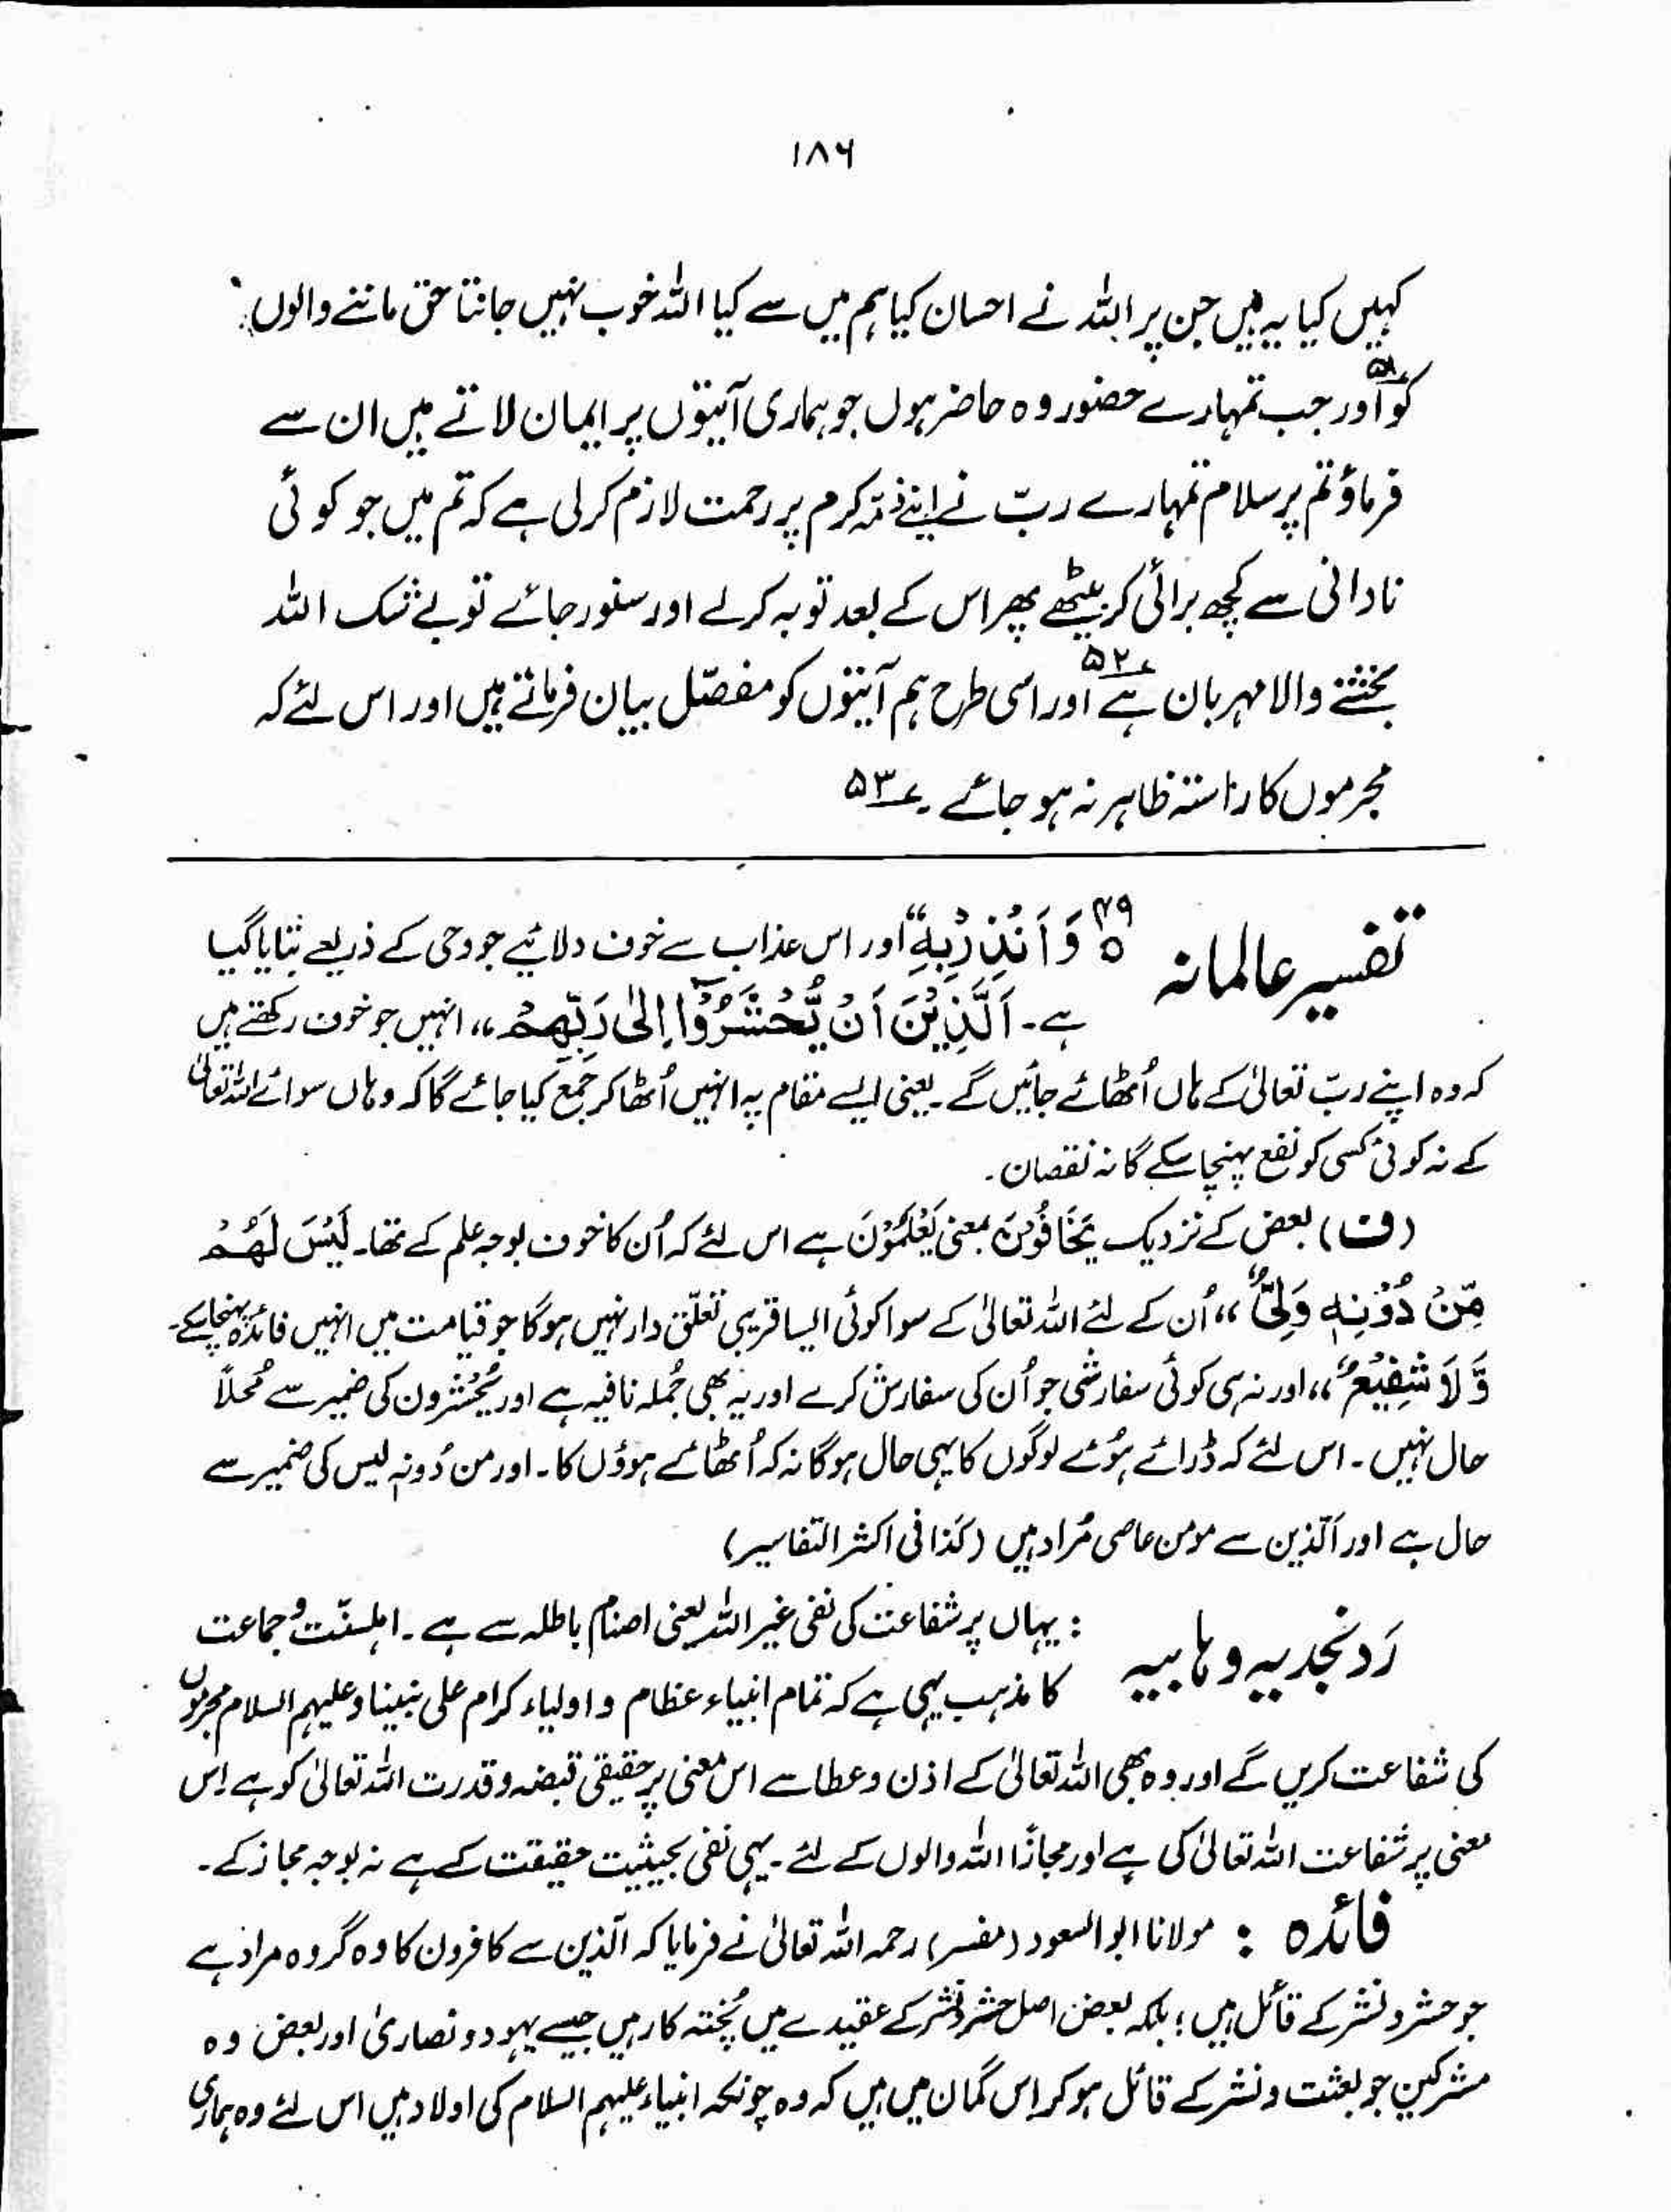 ۱۸۶
کہیں کیا یہ ہیں جن پر اللہ نے احسان کیا ہم میں سے کیا اللہ خوب نہیں جانتا حق ماننے والوں
کو اور جب تمہارے حضور وہ حاضر ہوں جو ہماری آیتوں پر ایمان لاتے ہیں ان سے
فرماؤ تم پر سلام تمہارے ربّ نے اپنے ذمّہ کرم پر رحمت لازم کرلی ہے کہ تم میں جو کوئی
نادانی سے کچھ برائی کر بیٹھے پھر اس کے بعد توبہ کرلے اور سنور جائے تو بے شک اللہ
بخشنے والا مہربان ہے ۵۲؎ اور اسی طرح ہم آیتوں کو مفصّل بیان فرماتے ہیں اور اس لئے کہ
مجرموں کا راستہ ظاہر نہ ہو جائے ۔ ۵۳؎
تفسیر عالمانہ ۴۹ وَ اَنْذِرْ بِهِ“ اور اس عذاب سے خوف دلائیے جو وحی کے ذریعے بتایا گیا
ہے۔ اَلَّذِیْنَ اَنْ یُّحْشَرُوْٓا اِلٰی رَبِّهِمْ ،، انہیں جو خوف رکھتے ہیں
کہ وہ اپنے ربّ تعالیٰ کے ہاں اُٹھائے جائیں گے ۔ یعنی ایسے مقام پہ انہیں اُٹھا کر جمع کیا جائے گا کہ وہاں سوائے اللہ تعالیٰ
کے نہ کوئی کسی کو نفع پہنچا سکے گا نہ نقصان ۔
(ف) بعض کے نزدیک یَخَافُوْنَ بمعنی یَعْلَمُوْنَ ہے اس لئے کہ اُن کا خوف بوجہ علم کے تھا۔ لَیْسَ لَهُمْ
مِّنْ دُوْنِهٖ وَلِیٌّ ،، اُن کے لئے اللہ تعالیٰ کے سوا کوئی ایسا قریبی تعلّق دار نہیں ہوگا جو قیامت میں انہیں فائدہ پہنچا سکے۔
وَّ لَا شَفِیْعٌ ،، اور نہ ہی کوئی سفارشی جو اُن کی سفارش کرے اور یہ بھی جُملہ نافیہ ہے اور یُحْشَرون کی ضمیر سے مُحلاً
حال نہیں ۔ اس لئے کہ ڈرائے ہوئے لوگوں کا یہی حال ہوگا نہ کہ اُٹھائے ہوؤں کا ۔ اور من دُونہٖ لیس کی ضمیر سے
حال ہے اور اَلّذین سے مومن عاصی مُراد ہیں (کَذا فی اکثر التفاسیر)
رَد نجدیہ وہابیہ : یہاں پر شفاعت کی نفی غیر اللہ یعنی اصنام باطلہ سے ہے ۔ اہلسنّت و جماعت
کا مذہب یہی ہے کہ تمام انبیاء عظام و اولیاء کرام علی نبینا و علیہم السلام مجرموں
کی شفاعت کریں گے اور وہ بھی اللہ تعالیٰ کے اذن و عطا سے اس معنی پر حقیقی قبضہ و قدرت اللہ تعالیٰ کو ہے اِس
معنی پر شفاعت اللہ تعالیٰ کی ہے اور مجازًا اللہ والوں کے لئے ۔ یہی نفی بحیثیت حقیقت کے ہے نہ بوجہ مجاز کے ۔
فائدہ : مولانا ابو السعود (مفسر) رحمہ اللہ تعالیٰ نے فرمایا کہ الّذین سے کافرون کا وہ گروہ مراد ہے
جو حشر و نشر کے قائل ہیں ؛ بلکہ بعض اصل حشر و نشر کے عقیدے میں پُختہ کار ہیں جیسے یہود و نصاریٰ اور بعض وہ
مشرکین جو بعثت و نشر کے قائل ہو کر اِس گمان میں ہیں کہ وہ چونکہ انبیاء علیہم السلام کی اولاد ہیں اس لئے وہ ہماری